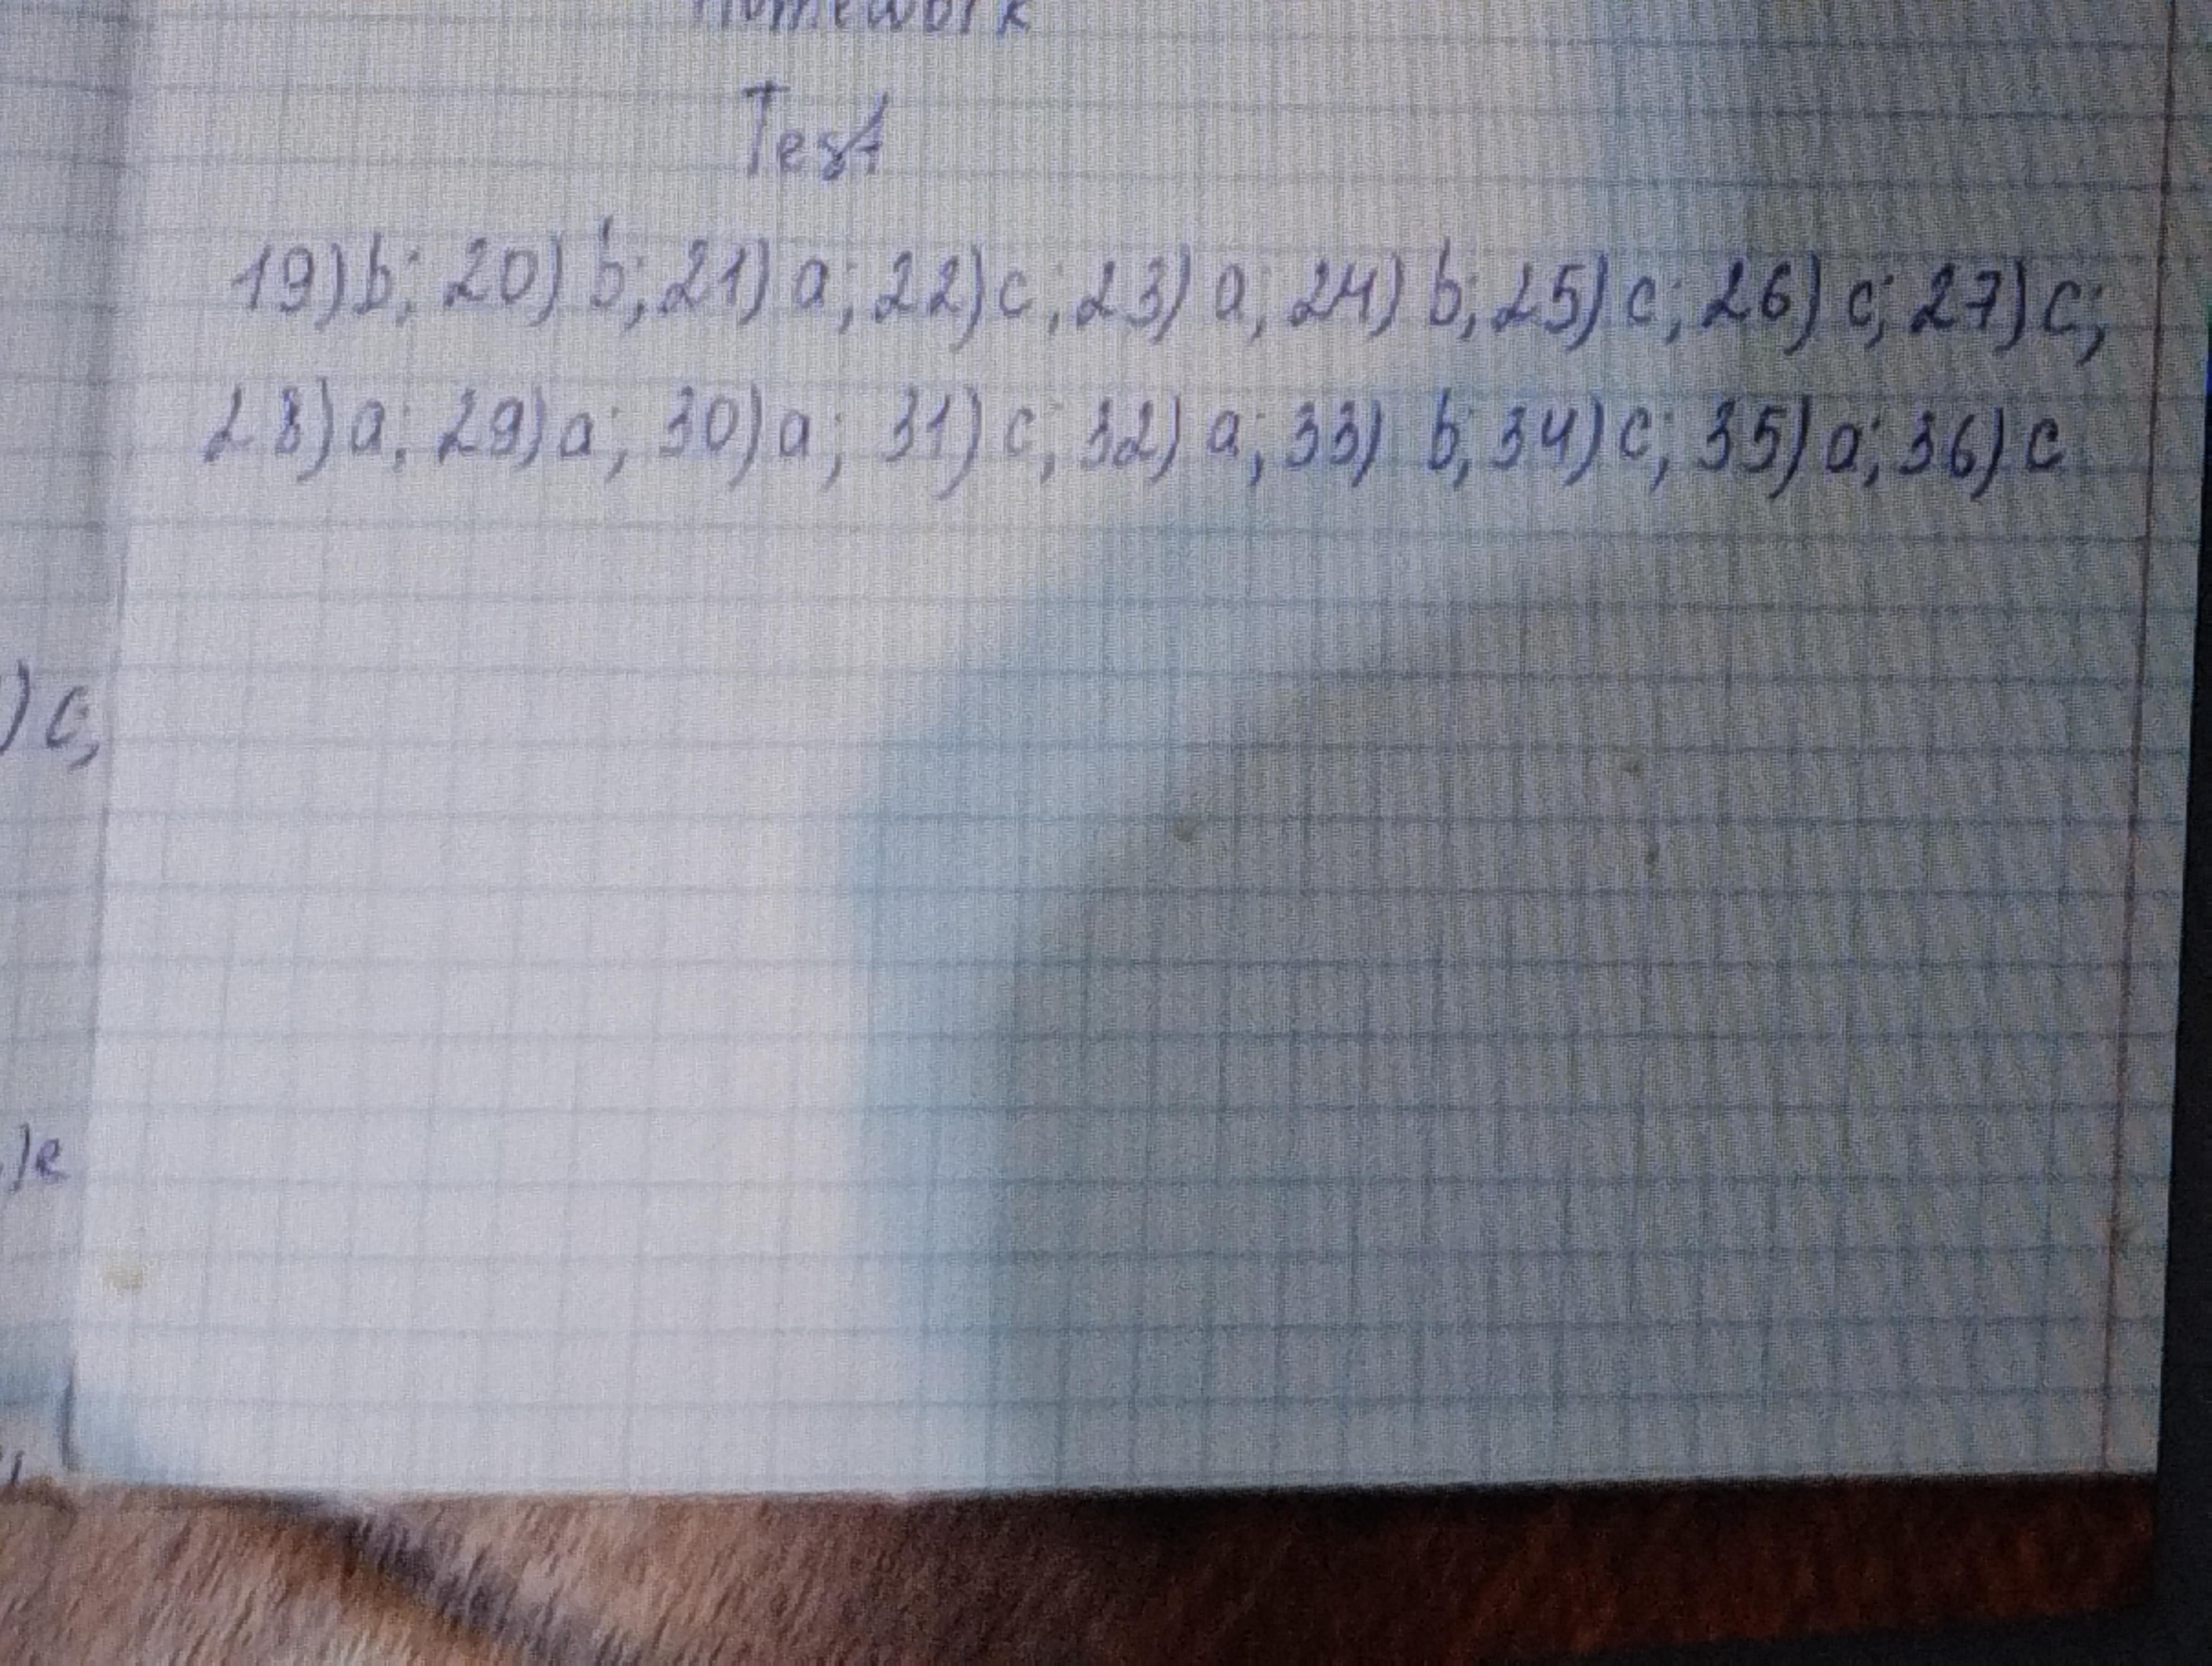 Homework
Test
19) b; 20) b; 21) a; 22) c; 23) a; 24) b; 25) c; 26) c; 27) c;
28) a; 29) a; 30) a; 31) c; 32) a; 33) b; 34) c; 35) a; 36) c
) c,
) e